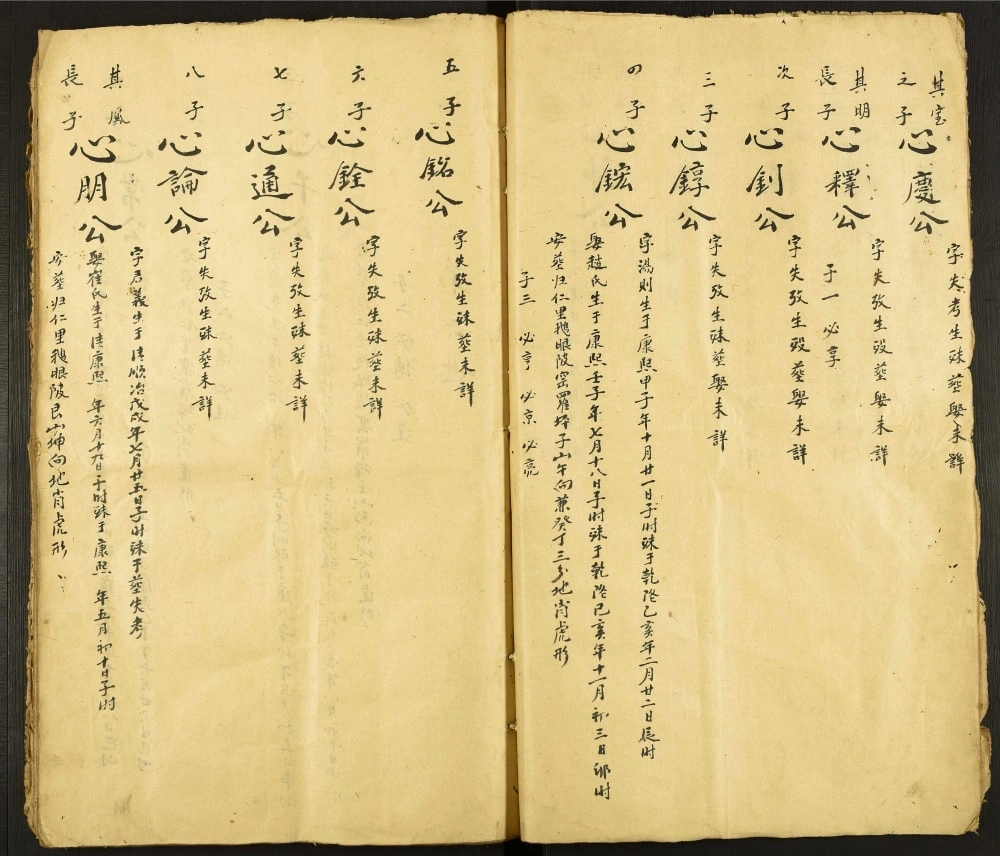 其宝
之子
心慶公
字失考生殁塟娶未詳
其明
長子
心釋公
字失攷生殁塟娶未詳
子一 必享
次子
心釗公
字失攷生殁塟娶未詳
三子
心錞公
字失攷生殁塟娶未詳
四子
心鋐公
字湯則生于康熙甲子年十月廿一日子时殁于乾隆乙亥年二月廿二日辰时
娶趙氏生于康熙壬子年七月十八日子时殁于乾隆己亥年十一月初三日卯时
安塟归仁里鵝眼陂窑羅坪子山午向兼癸丁三分地肖虎形
子三 必亨 必京 必亮
五子
心銘公
字失攷生殁塟未詳
六子
心銓公
字失攷生殁塟未詳
七子
心通公
字失攷生殁塟未詳
八子
心論公
字失攷生殁塟未詳
其鳳
長子
心朋公
字居義生于清順治戊戌年七月廿五日子时殁于塟失考
娶崔氏生于清康熙 年六月十九日子时殁于康熙 年五月初十日子时
安塟归仁里鵝眼陂艮山坤向地肖虎形